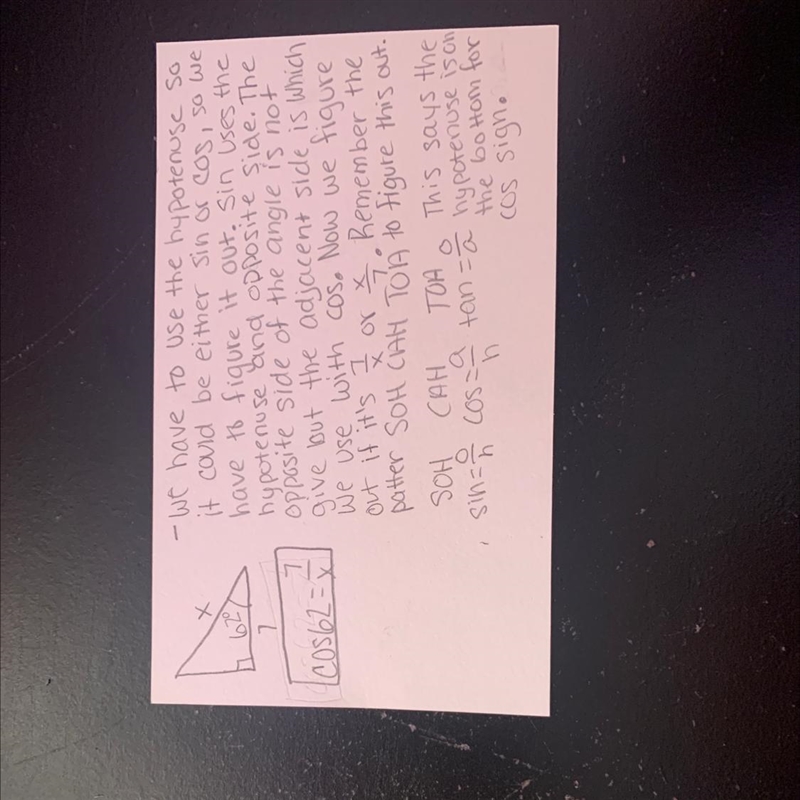 x
62°
7
cos62 = 7/x
- We have to use the hypotenuse so
it could be either sin or cos, so we
have to figure it out. Sin uses the
hypotenuse and opposite side. The
opposite side of the angle is not
give but the adjacent side is which
we use with cos. Now we figure
out if it's 7/x or x/7. Remember the
patter SOH CAH TOA to figure this out.
SOH CAH TOA This says the
sin=o/h cos=a/h tan=o/a hypotenuse is on
the bottom for
cos sign.